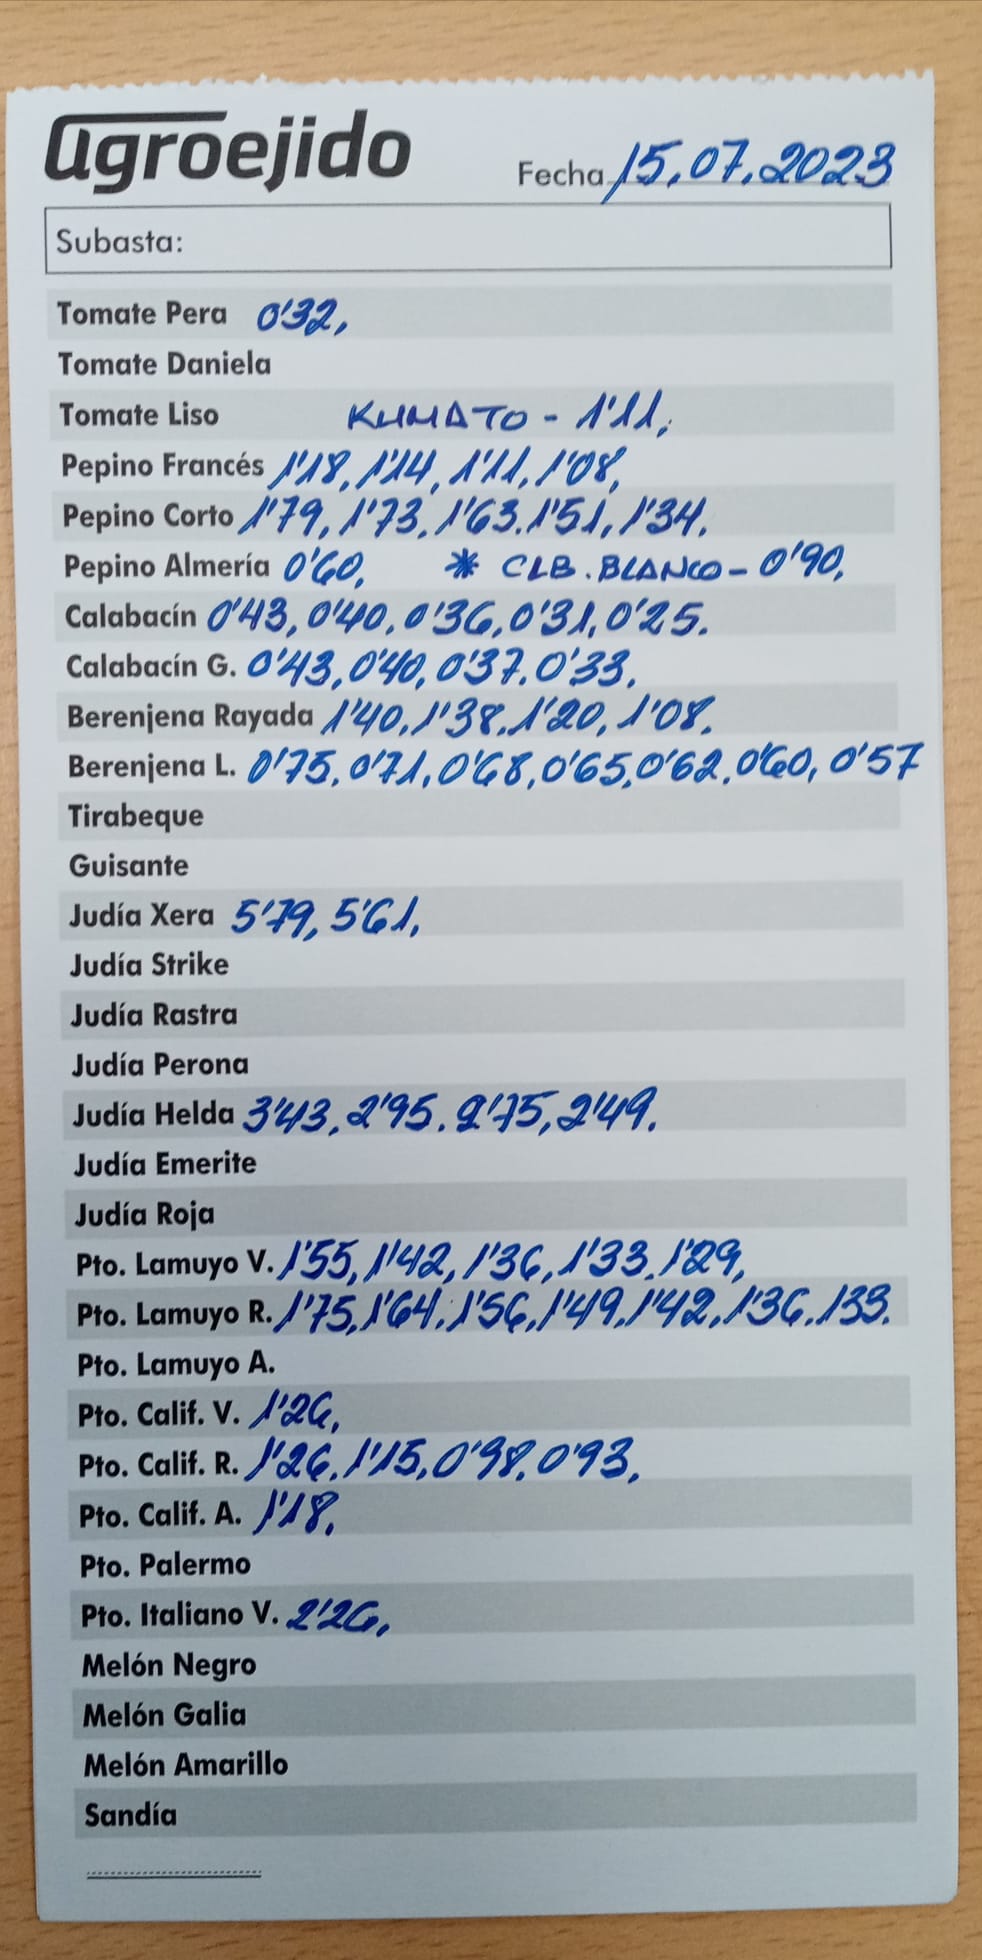 agroejido
Fecha 15.07.2023
Subasta:
Tomate Pera 0'32,
Tomate Daniela
Tomate Liso KUMATO - 1'11,
Pepino Francés 1'18, 1'14, 1'11, 1'08,
Pepino Corto 1'79, 1'73, 1'63. 1'51, 1'34.
Pepino Almería 0'60, * CLB. BLANCO - 0'90,
Calabacín 0'43, 0'40, 0'36, 0'31, 0'25.
Calabacín G. 0'43, 0'40, 0'37. 0'33,
Berenjena Rayada 1'40, 1'38, 1'20, 1'08.
Berenjena L. 0'75, 0'71, 0'68, 0'65, 0'62, 0'60, 0'57
Tirabeque
Guisante
Judía Xera 5'79, 5'61,
Judía Strike
Judía Rastra
Judía Perona
Judía Helda 3'43, 2'95. 2'75, 2'49.
Judía Emerite
Judía Roja
Pto. Lamuyo V. 1'55, 1'42, 1'36, 1'33, 1'29,
Pto. Lamuyo R. 1'75, 1'64, 1'56, 1'49, 1'42, 1'36, 133.
Pto. Lamuyo A.
Pto. Calif. V. 1'26,
Pto. Calif. R. 1'26, 1'15, 0'98, 0'93,
Pto. Calif. A. 1'18,
Pto. Palermo
Pto. Italiano V. 2'26,
Melón Negro
Melón Galia
Melón Amarillo
Sandía